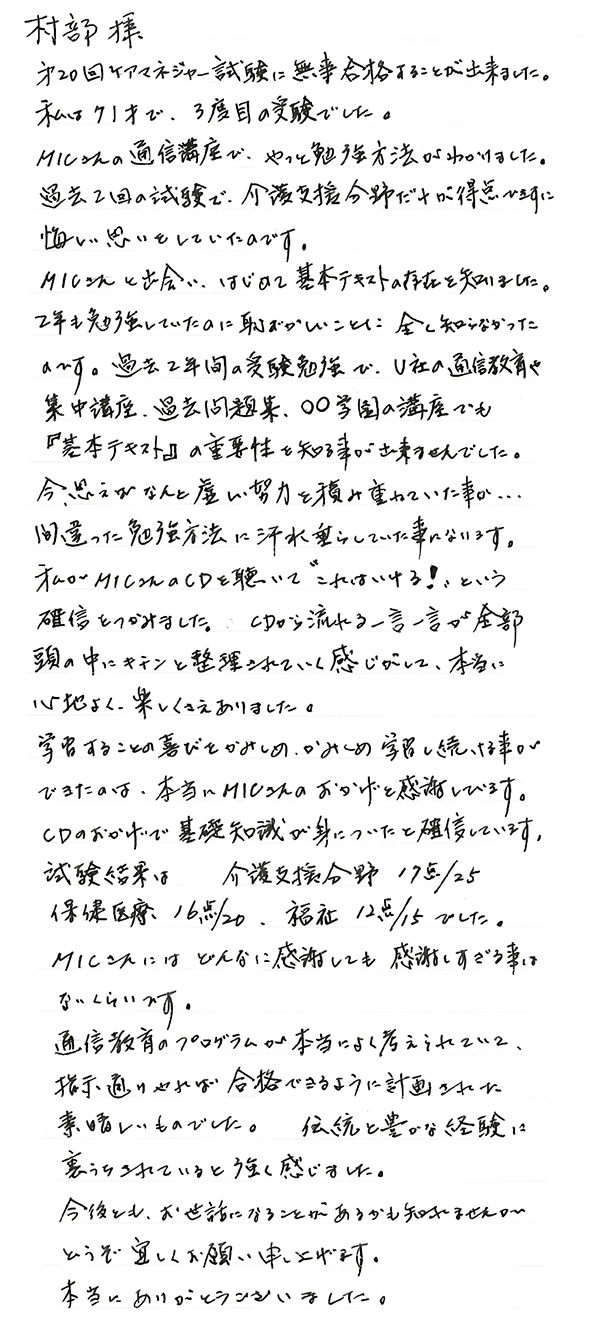 村部 様
第20回ケアマネジャー試験に無事合格することが出来ました。
私は71才で、3度目の受験でした。
MICさんの通信講座で、やっと勉強方法がわかりました。
過去2回の試験で、介護支援分野だけが得点できずに
悔しい思いをしていたのです。
MICさんと出合い、はじめて基本テキストの存在を知りました。
2年も勉強していたのに恥ずかしいことに全く知らなかった
のです。過去2年間の受験勉強で、U社の通信教育や
集中講座、過去問題集、〇〇学園の講座でも
『基本テキスト』の重要性を知る事が出来ませんでした。
今、思えばなんと虚しい努力を積み重ねていた事か…
間違った勉強方法に汗水垂らしていた事になります。
私がMICさんのCDを聴いて“これはいける!”という
確信をつかみました。 CDから流れる一言一言が全部
頭の中にキチンと整理されていく感じがして、本当に
心地よく、楽しくさえありました。
学習することの喜びをかみしめ、かみしめ学習し続ける事が
できたのは、本当にMICさんのおかげと感謝しています。
CDのおかげで基礎知識が身についたと確信しています。
試験結果は 介護支援分野 17点/25
保健医療、16点/20、福祉 12点/15でした。
MICさんにはどんなに感謝しても感謝しすぎる事は
ないくらいです。
通信教育のプログラムが本当によく考えられていて、
指示通りやれば合格できるように計画された
素晴しいものでした。 伝統と豊かな経験に
裏うちされていると強く感じました。
今後とも、お世話になることがあるかも知れませんが
どうぞ宜しくお願い申し上げます。
本当にありがとうございました。